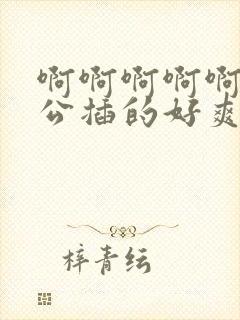 啊啊啊啊啊
公插的好爽
梓青纭